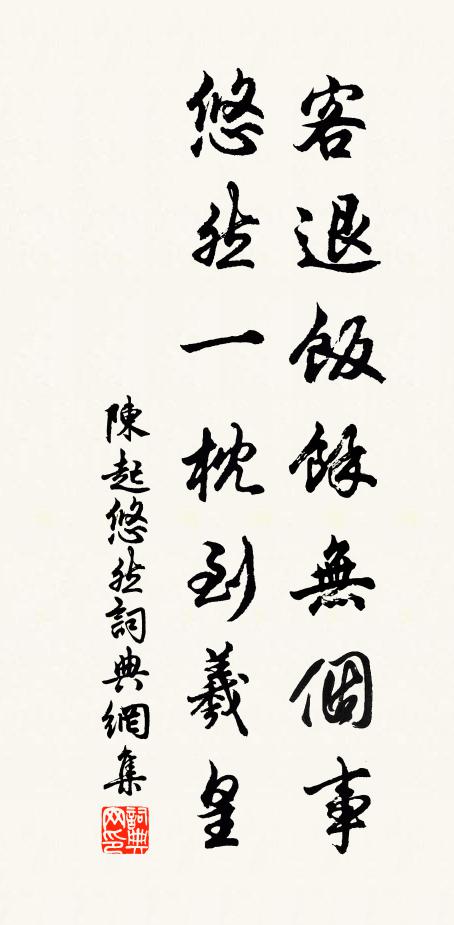 客退飯餘無個事
悠然一枕到羲皇
陳起悠然詞典網集
詞典
網印